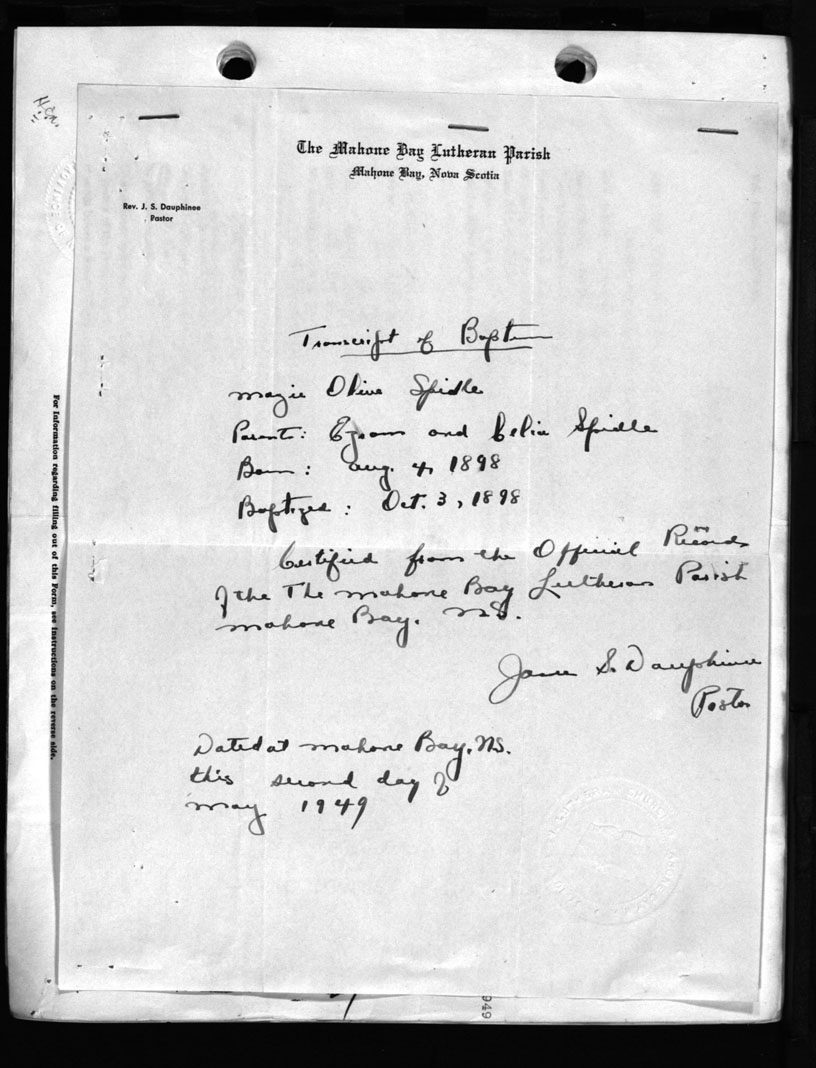 The Mahone Bay Lutheran Parish
Mahone Bay, Nova Scotia
Rev. J. S. Dauphinee
Pastor
Transcript of Baptism
Mazie Olive Spidle
Parents: and Celia Spidle
Born: Aug. 4, 1898
Baptized: Oct. 3, 1898
Certified from the Official Records
of the The Mahone Bay Lutheran Parish
Mahone Bay, N.S.
James S. Dauphinee
Pastor
Dated at Mahone Bay, N.S.
this second day of
May 1949
For Information regarding filling out of this Form, see Instructions on the reverse side.
949